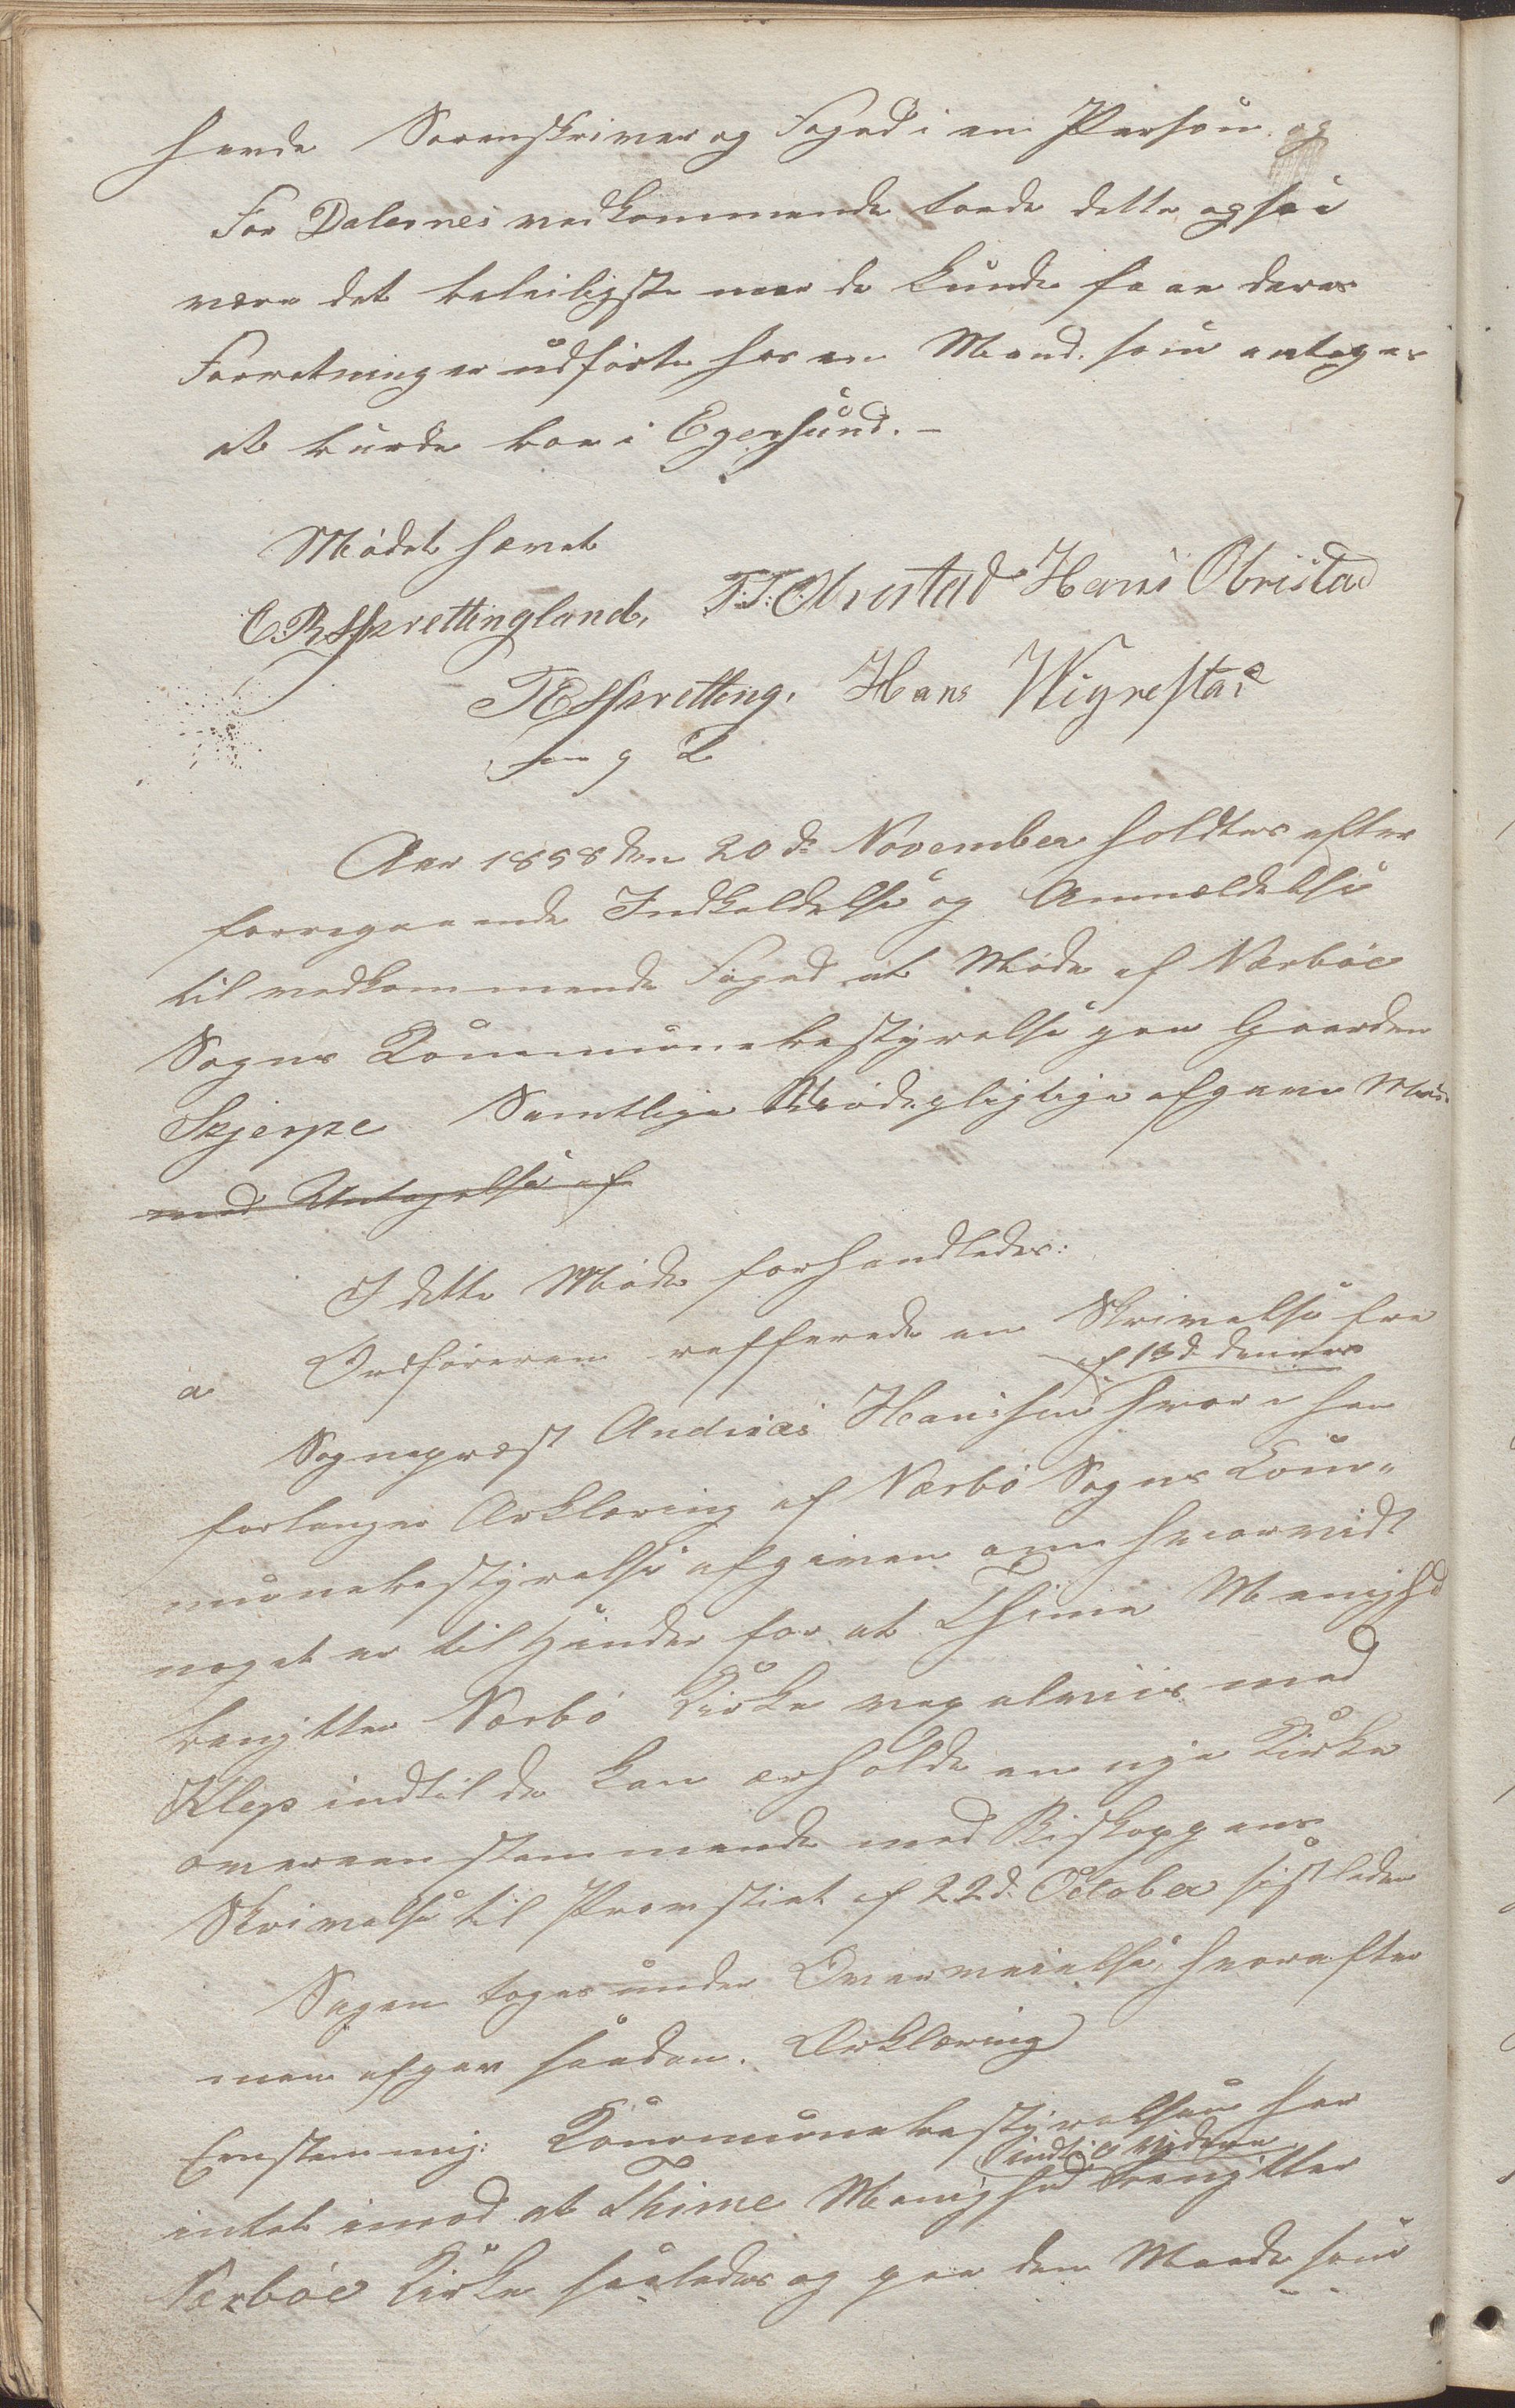 havde Sorenskriver og Foged i en Person og
For Dalernes vedkommende torde dette ogsaa
være det beleiligste naar de kunde faae deres
Forretninger udførte hos en Mand som antages
at burde boe i Egersund. –
Mødet hævet
E. R. Sprettingland, T. T. Obrestad Hans Obristad
R Spretting, Hans Wigrestad
Aar 1858 den 20de November holdtes efter
forregaaende Indkaldelse og Anmældelse
til vedkommende Foged et Møde af Nærbøe
Sogns Kommunebestyrelse paa Gaarden
Skjerpe Samtlige Mødepligtige afgave Møde
med Untagelse af
I dette Møde forhandledes:
a Ordføreren refferede en Skrivelse fra
af 13de dennes
Sognepræst Andreas Hansen hvori han
forlanger Ærklæring af Nærbø Sogns Com-
munebestyrelse afgiven om hvorvidt
noget er til Hinder for at Thime Menighed
benytter Nærbø Kirke vexelviis med
Klep indtil de kan ærholde en nye Kirke
overeenstemmende med Biskoppens
Skrivelse til Provstiet af 22de October sistleden
Sagen toges under Overveielse, hvorefter
man afgav saadan Ærklæring
Enstemmig: Kommunebestyrelsen har
indtil vidre
intet imod at Thime Menighed benytter
Nærbøe Kirke saaledes og paa den Maade som